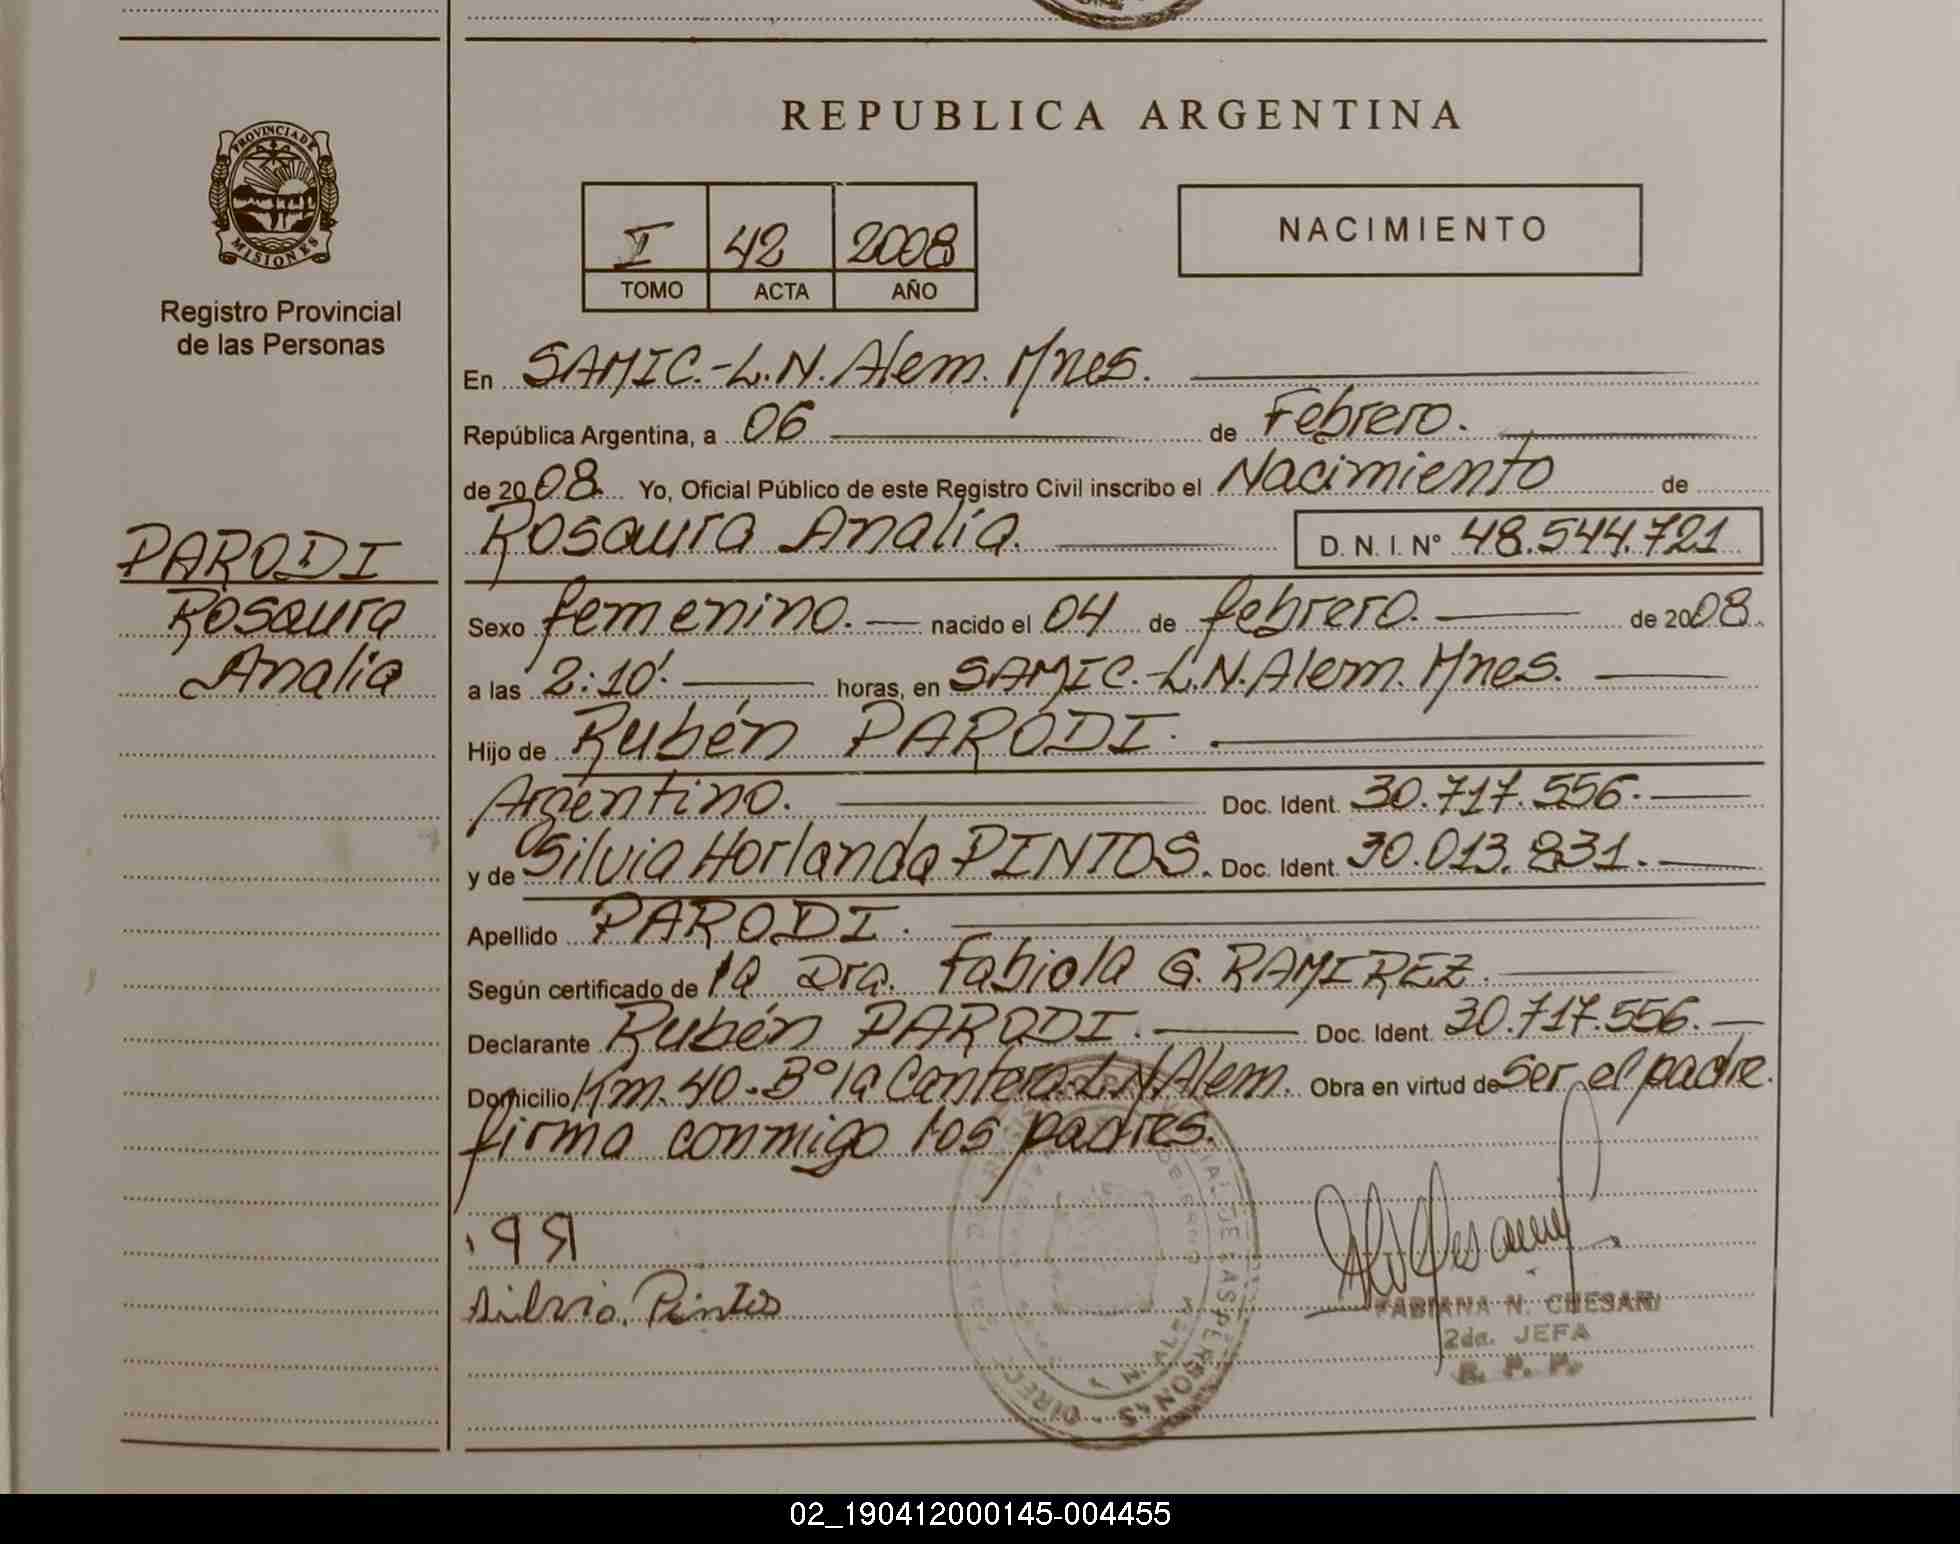 REPUBLICA ARGENTINA
PROVINCIA DE
MISIONES
Registro Provincial
de las Personas
I 42 2008
TOMO ACTA AÑO
NACIMIENTO
En SAMIC.-L.N.Alem. Mnes.
República Argentina, a 06 de Febrero.
de 2008. Yo, Oficial Público de este Registro Civil inscribo el Nacimiento de
Rosaura Analía. D.N.I. Nº 48.544.721
PARODI
Rosaura
Analia
Sexo femenino. nacido el 04 de febrero. de 2008.
a las 2:10'. horas, en SAMIC.-L.N.Alem. Mnes.
Hijo de Rubén PARODI.
Argentino. Doc. Ident. 30.717.556.
y de Silvia Horlanda PINTOS. Doc. Ident. 30.013.831.
Apellido PARODI.
Según certificado de la Dra. Fabiola G. RAMIREZ.
Declarante Rubén PARODI. Doc. Ident. 30.717.556.
Domicilio Km. 40.-Bº la Cantera-L.N.Alem. Obra en virtud de Ser el padre.
firma conmigo los padres.
Silvia. Pintos
FABIANA N. CHESANI
2da. JEFA
R. P. P.
02_190412000145-004455